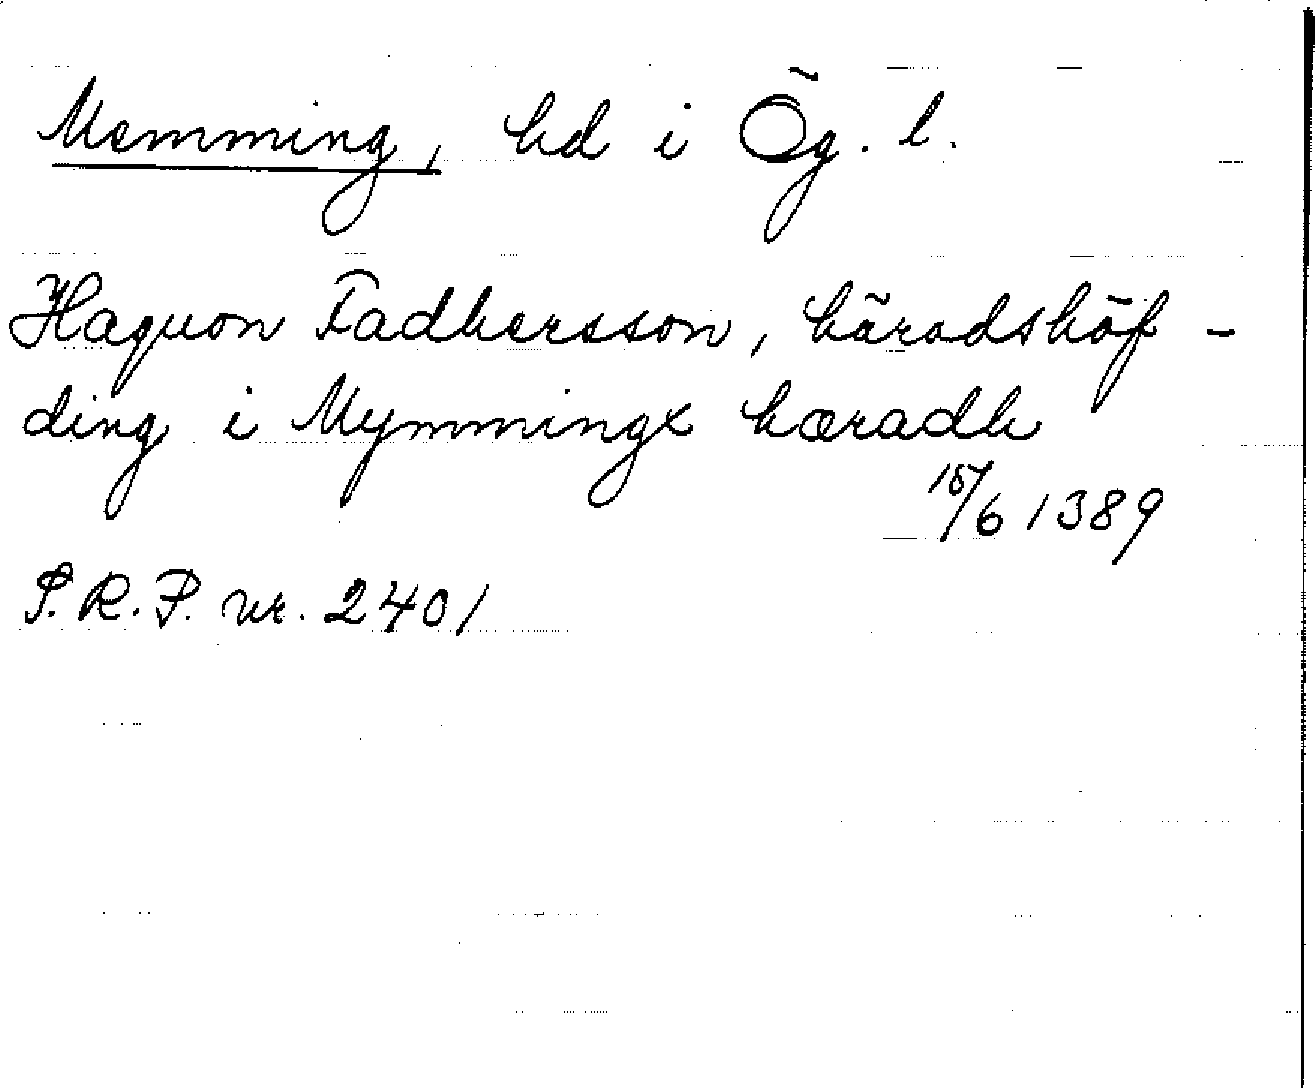 Memming, hd i Ög. l.
Haquon Fadhersson, häradshöf-
ding i Mymmingx hæradh
15/6 1389
S.R.P. nr. 2401